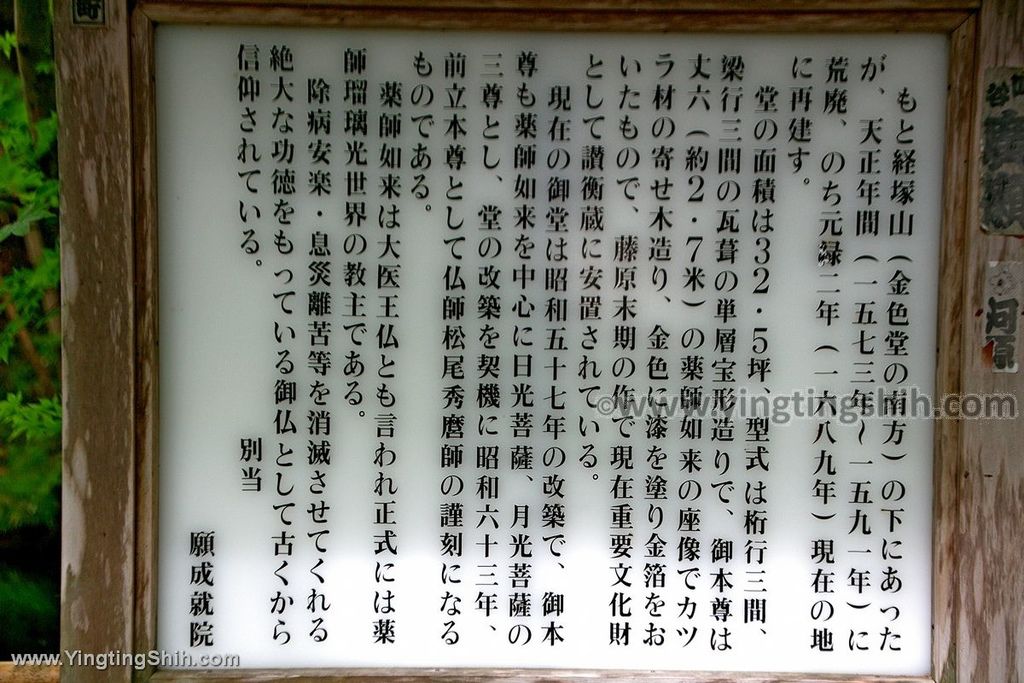 もと経塚山（金色堂の南方）の下にあった
が、天正年間（一五七三年～一五九一年）に
荒廃、のち元禄二年（一六八九年）現在の地
に再建す。
堂の面積は３２・５坪　型式は桁行三間、
梁行三間の瓦葺の単層宝形造りで、御本尊は
丈六（約２・７米）の薬師如来の座像でカツ
ラ材の寄せ木造り、金色に漆を塗り金箔をお
いたもので、藤原末期の作で現在重要文化財
として讃衡蔵に安置されている。
現在の御堂は昭和五十七年の改築で、御本
尊も薬師如来を中心に日光菩薩、月光菩薩の
三尊とし、堂の改築を契機に昭和六十三年、
前立本尊として仏師松尾秀麿師の謹刻になる
ものである。
薬師如来は大医王仏とも言われ正式には薬
師瑠璃光世界の教主である。
除病安楽・息災離苦等を消滅させてくれる
絶大な功徳をもっている御仏として古くから
信仰されている。
別当
願成就院
町
河原
©www.yingtingshih.com
www.YingtingShih.com